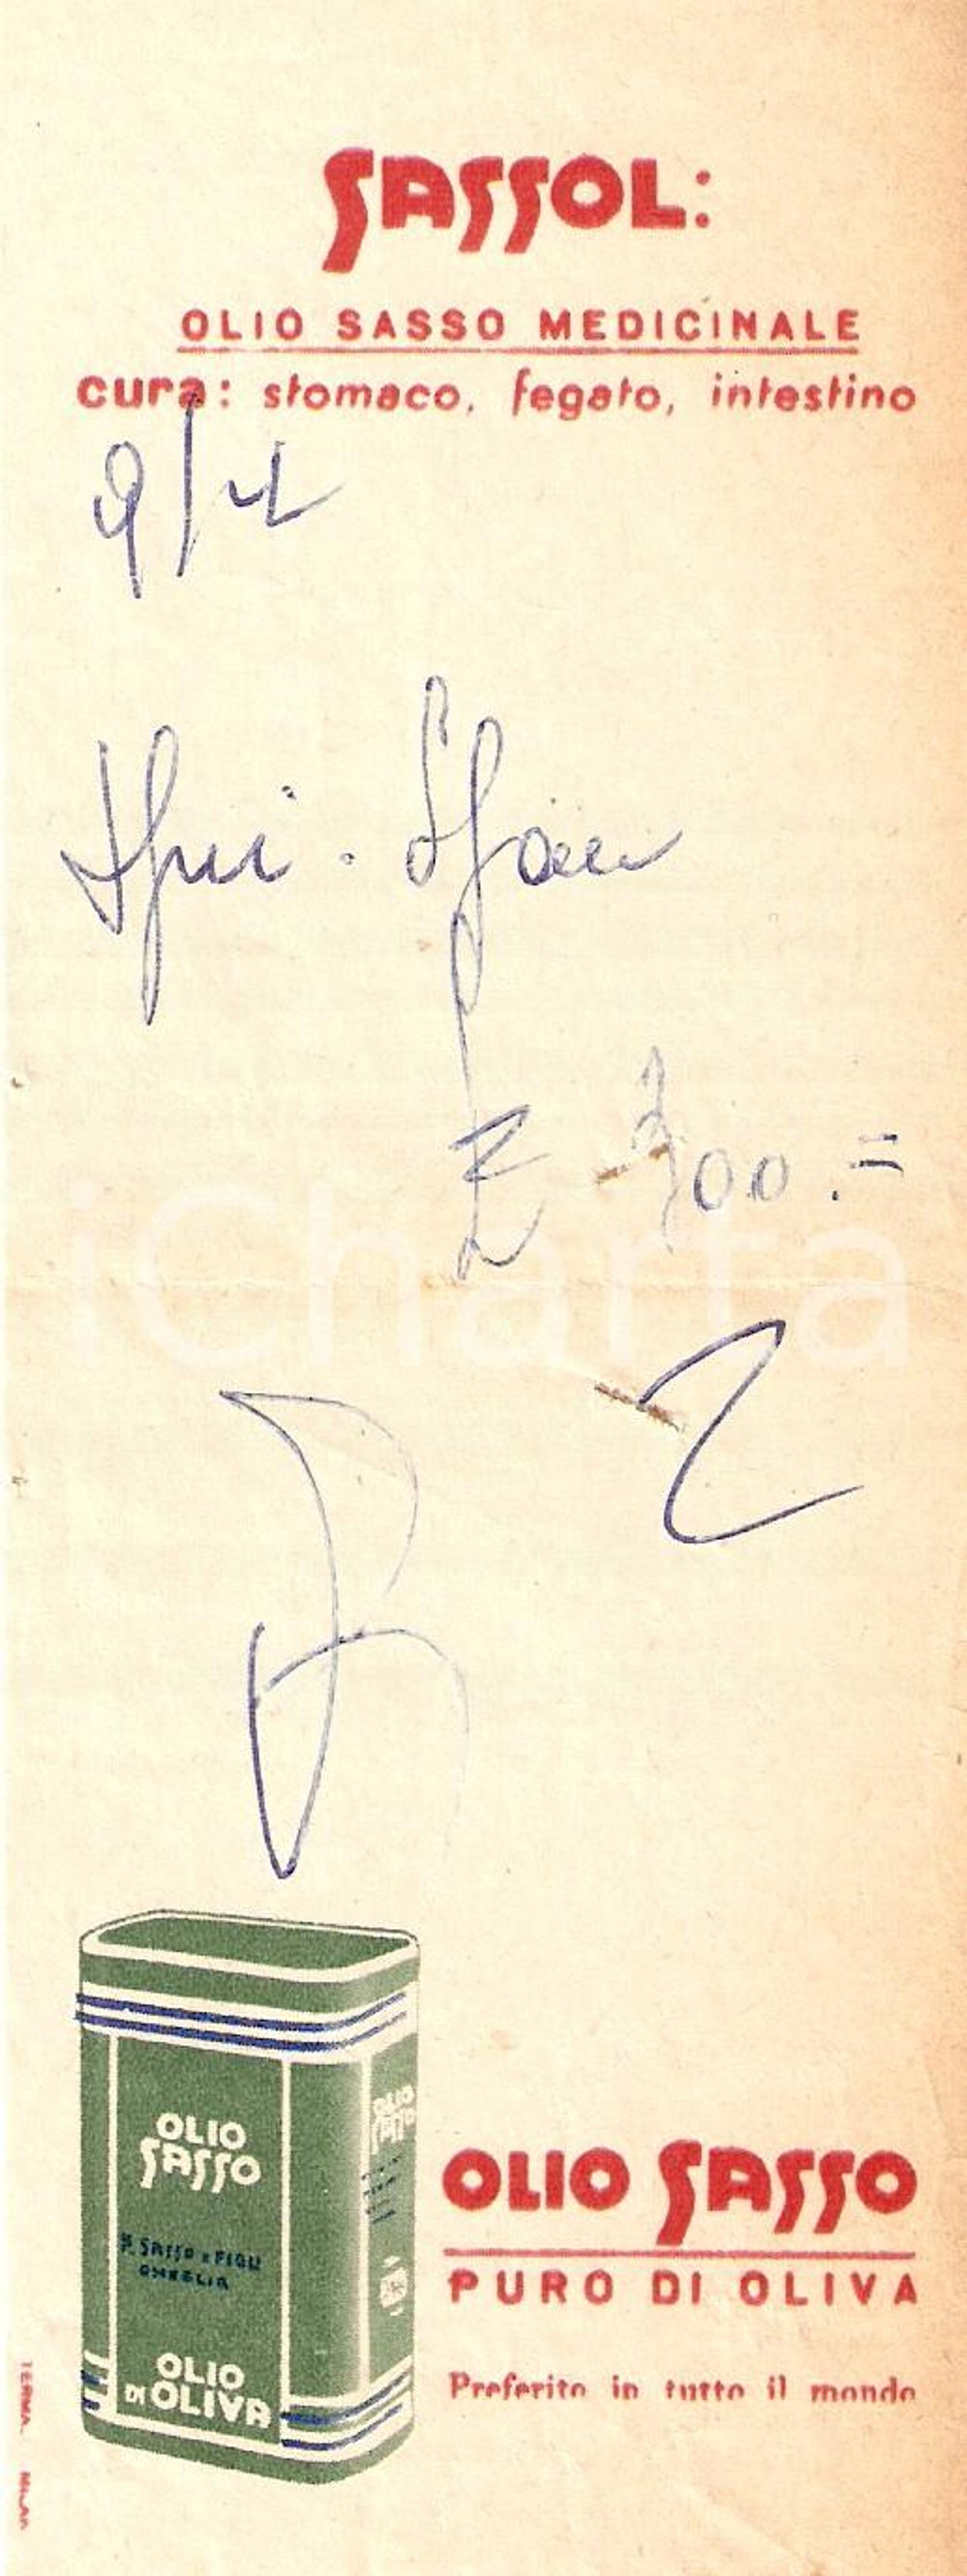 SASSOL:
OLIO SASSO MEDICINALE
cura: stomaco, fegato, intestino
£ 300.=
iCharta
OLIO
SASSO
OLIO
SASSO
P. SASSO E FIGLI
ONEGLIA
OLIO
DI OLIVA
OLIO SASSO
PURO DI OLIVA
Preferito in tutto il mondo